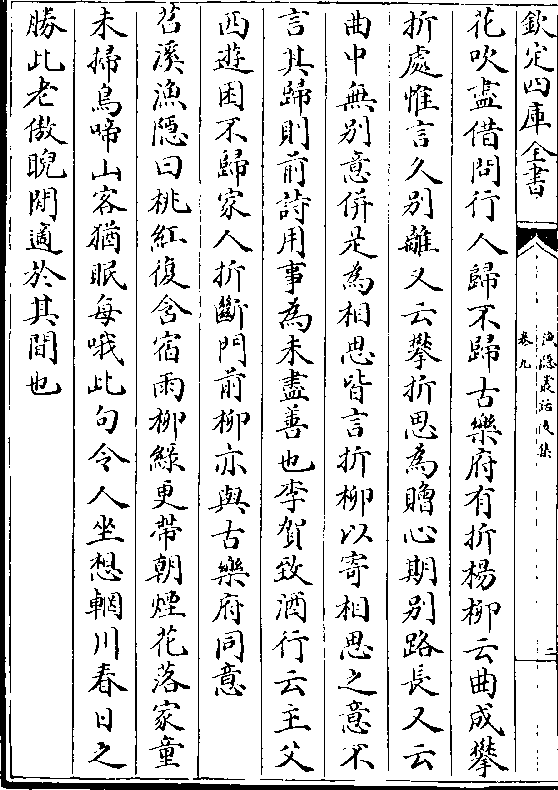 欽定四庫全書
漁隱叢話後集
卷九
二
花吹盡借問行人歸不歸古樂府有折楊柳云曲成攀
折處惟言久别離又云攀折思為贈心期别路長又云
曲中無别意併是為相思皆言折柳以寄相思之意不
言其歸則前詩用事為未盡善也李賀致酒行云主父
西遊困不歸家人折斷門前柳亦與古樂府同意
苕溪漁隱曰桃紅復含宿雨柳緑更帶朝煙花落家童
未掃鳥啼山客猶眠每哦此句令人坐想輞川春日之
勝此老傲睨閒適於其間也